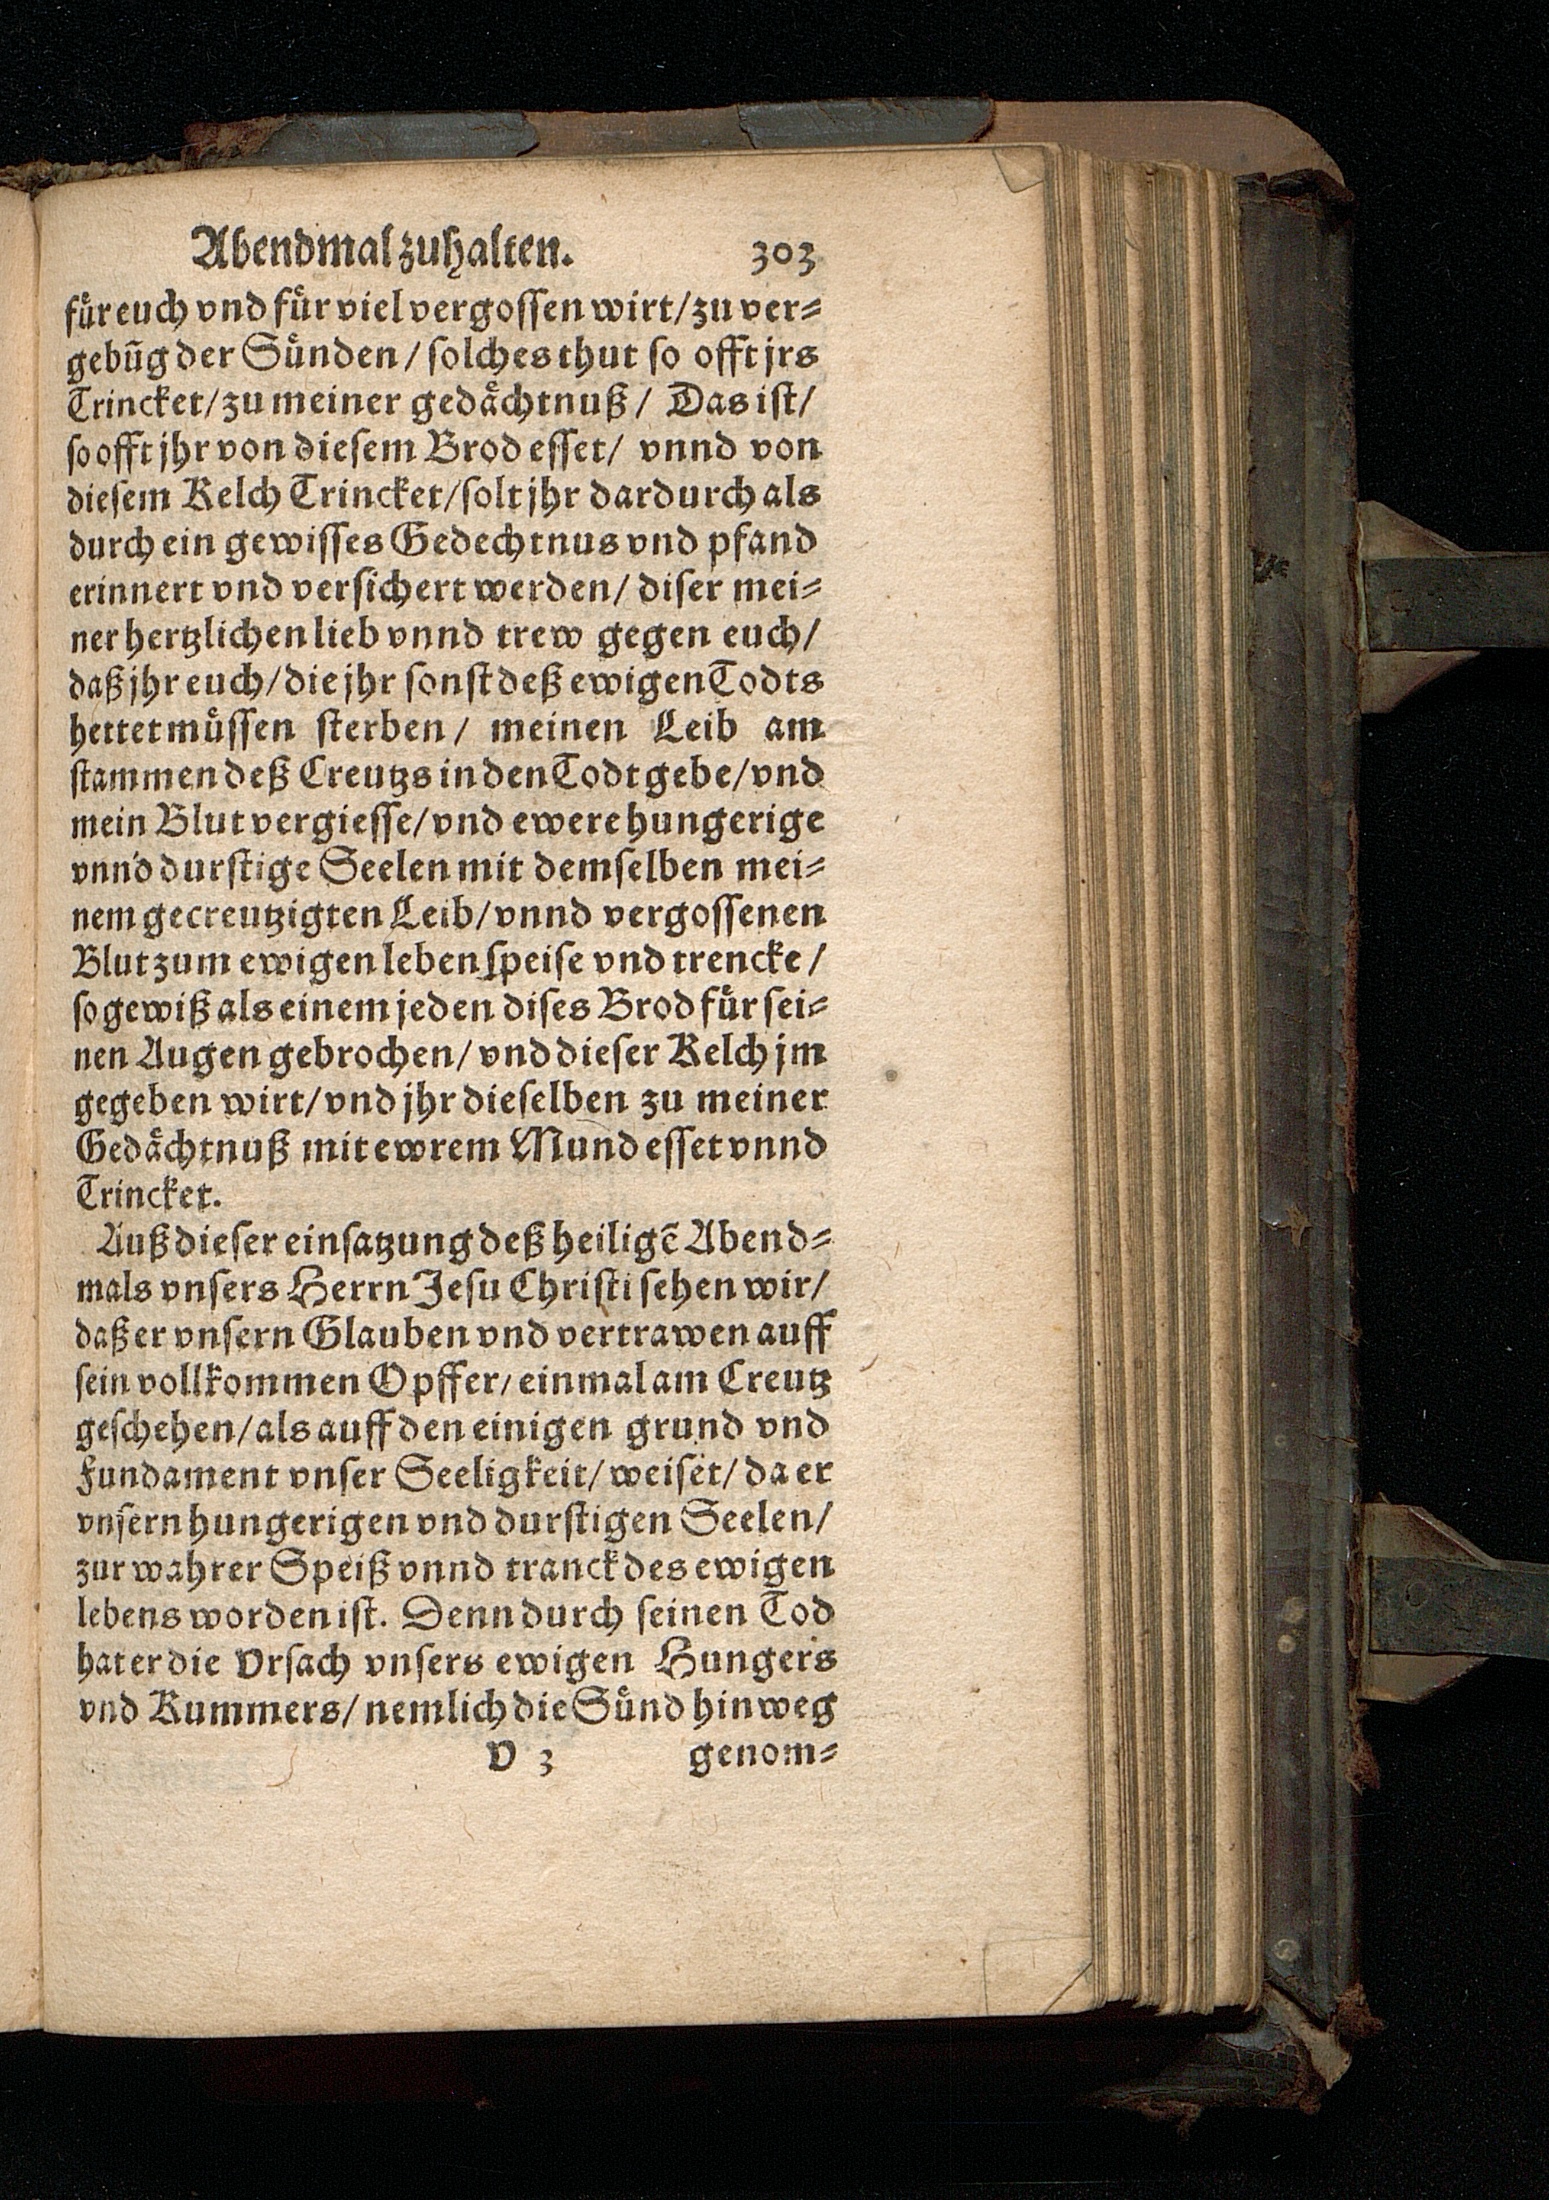 Abendmal zuhalten. 303
für euch vnd für viel vergossen wirt/ zu ver⸗
gebũg der Sünden/ solches thut so offt jrs
Trincket/ zu meiner gedächtnuß/ Das ist/
so offt jhr von diesem Brod esset/ vnnd von
diesem Kelch Trincket/ solt jhr dardurch als
durch ein gewisses Gedechtnus vnd pfand
erinnert vnd versichert werden/ diser mei⸗
ner hertzlichen lieb vnnd trew gegen euch/
daß jhr euch/ die jhr sonst deß ewigen Todts
hettet müssen sterben/ meinen Leib am
stammen deß Creutzs in den Todt gebe/ vnd
mein Blut vergiesse/ vnd ewere hungerige
vnnd durstige Seelen mit demselben mei⸗
nem gecreutzigten Leib/ vnnd vergossenen
Blut zum ewigen leben speise vnd trencke/
so gewiß als einem jeden dises Brod für sei⸗
nen Augen gebrochen/ vnd dieser Kelch jm
gegeben wirt/ vnd jhr dieselben zu meiner
Gedächtnuß mit ewrem Mund esset vnnd
Trincket.
Auß dieser einsatzung deß heiligẽ Abend⸗
mals vnsers Herrn Jesu Christi sehen wir/
daß er vnsern Glauben vnd vertrawen auff
sein vollkommen Opffer/ einmal am Creutz
geschehen/ als auff den einigen grund vnd
Fundament vnser Seeligkeit/ weiset/ da er
vnsern hungerigen vnd durstigen Seelen/
zur wahrer Speiß vnnd tranck des ewigen
lebens worden ist. Denn durch seinen Tod
hat er die Vrsach vnsers ewigen Hungers
vnd Kummers/ nemlich die Sünd hinweg
V 3 genom⸗